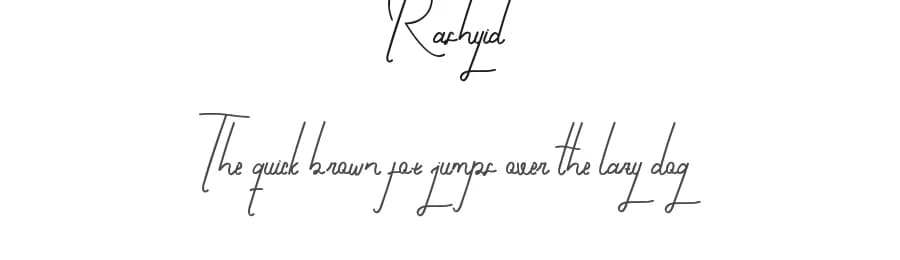 Rashyid
The quick brown fox jumps over the lazy dog